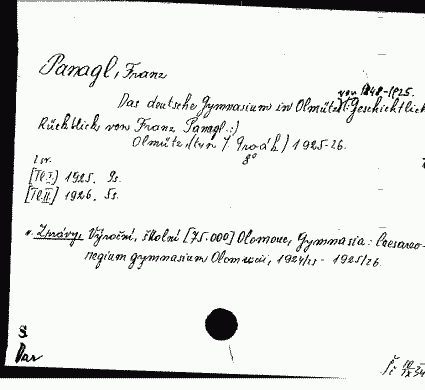 Panagl, Franz
von 1848-1925.
Das deutsche Gymnasium in Olmütz (: Geschichtlich
Rückblick von Franz Panagl :)
Olmütz (tvn J. Groák) 1925-26.
8°
2 sv.
[Tl.I.] 1925. 9s.
[Tl.II.] 1926. 5s.
v. Zprávy, Výroční, školní [75.000] Olomouc, Gymnasia: Caesareo-
regium gymnasium Olomucii, 1924/25 - 1925/26.
S
Dar